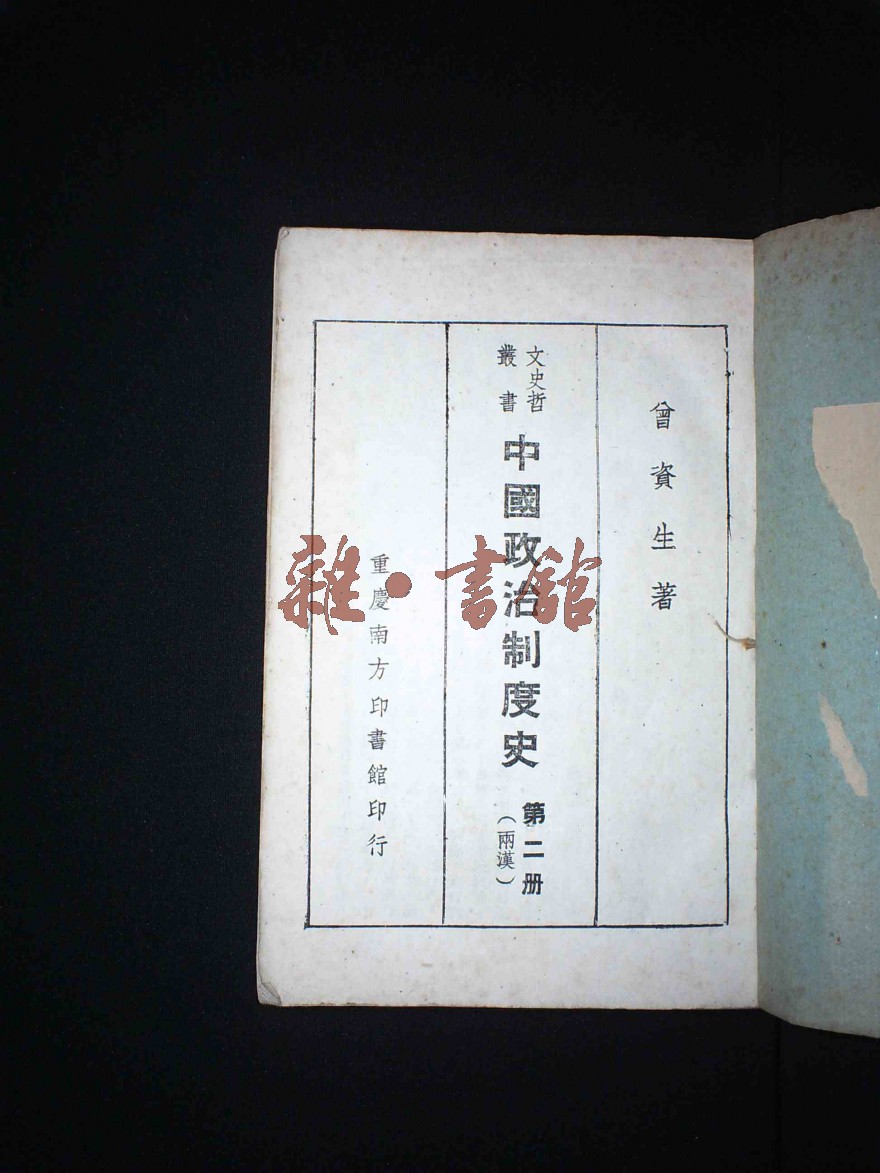 曾資生著
文史哲
叢書
中國政治制度史
第二册
（兩漢）
重慶南方印書館印行
雜·書館